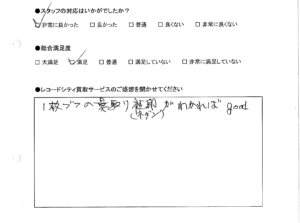 ●スタッフの対応はいかがでしたか?
☑非常に良かった □良かった □普通 □良くない □非常に良くない
●総合満足度
□大満足 ☑満足 □普通 □満足していない □非常に満足していない
●レコードシティ買取サービスのご感想を聞かせてください
1枚づつの買取り値段がわかれば good
(ネダン)